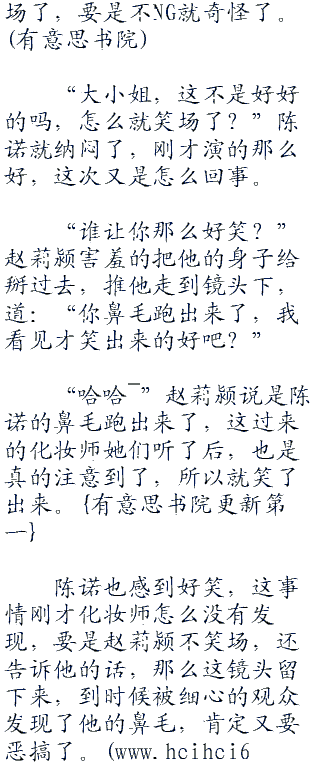 场了，要是不NG就奇怪了。
(有意思书院)
“大小姐，这不是好好
的吗，怎么就笑场了？”陈
诺就纳闷了，刚才演的那么
好，这次又是怎么回事。
“谁让你那么好笑？”
赵莉颖害羞的把他的身子给
掰过去，推他走到镜头下，
道：“你鼻毛跑出来了，我
看见才笑出来的好吧？”
“哈哈¯”赵莉颖说是陈
诺的鼻毛跑出来了，这过来
的化妆师她们听了后，也是
真的注意到了，所以就笑了
出来。{有意思书院更新第
一}
陈诺也感到好笑，这事
情刚才化妆师怎么没有发
现，要是赵莉颖不笑场，还
告诉他的话，那么这镜头留
下来，到时候被细心的观众
发现了他的鼻毛，肯定又要
恶搞了。(www.hcihci6